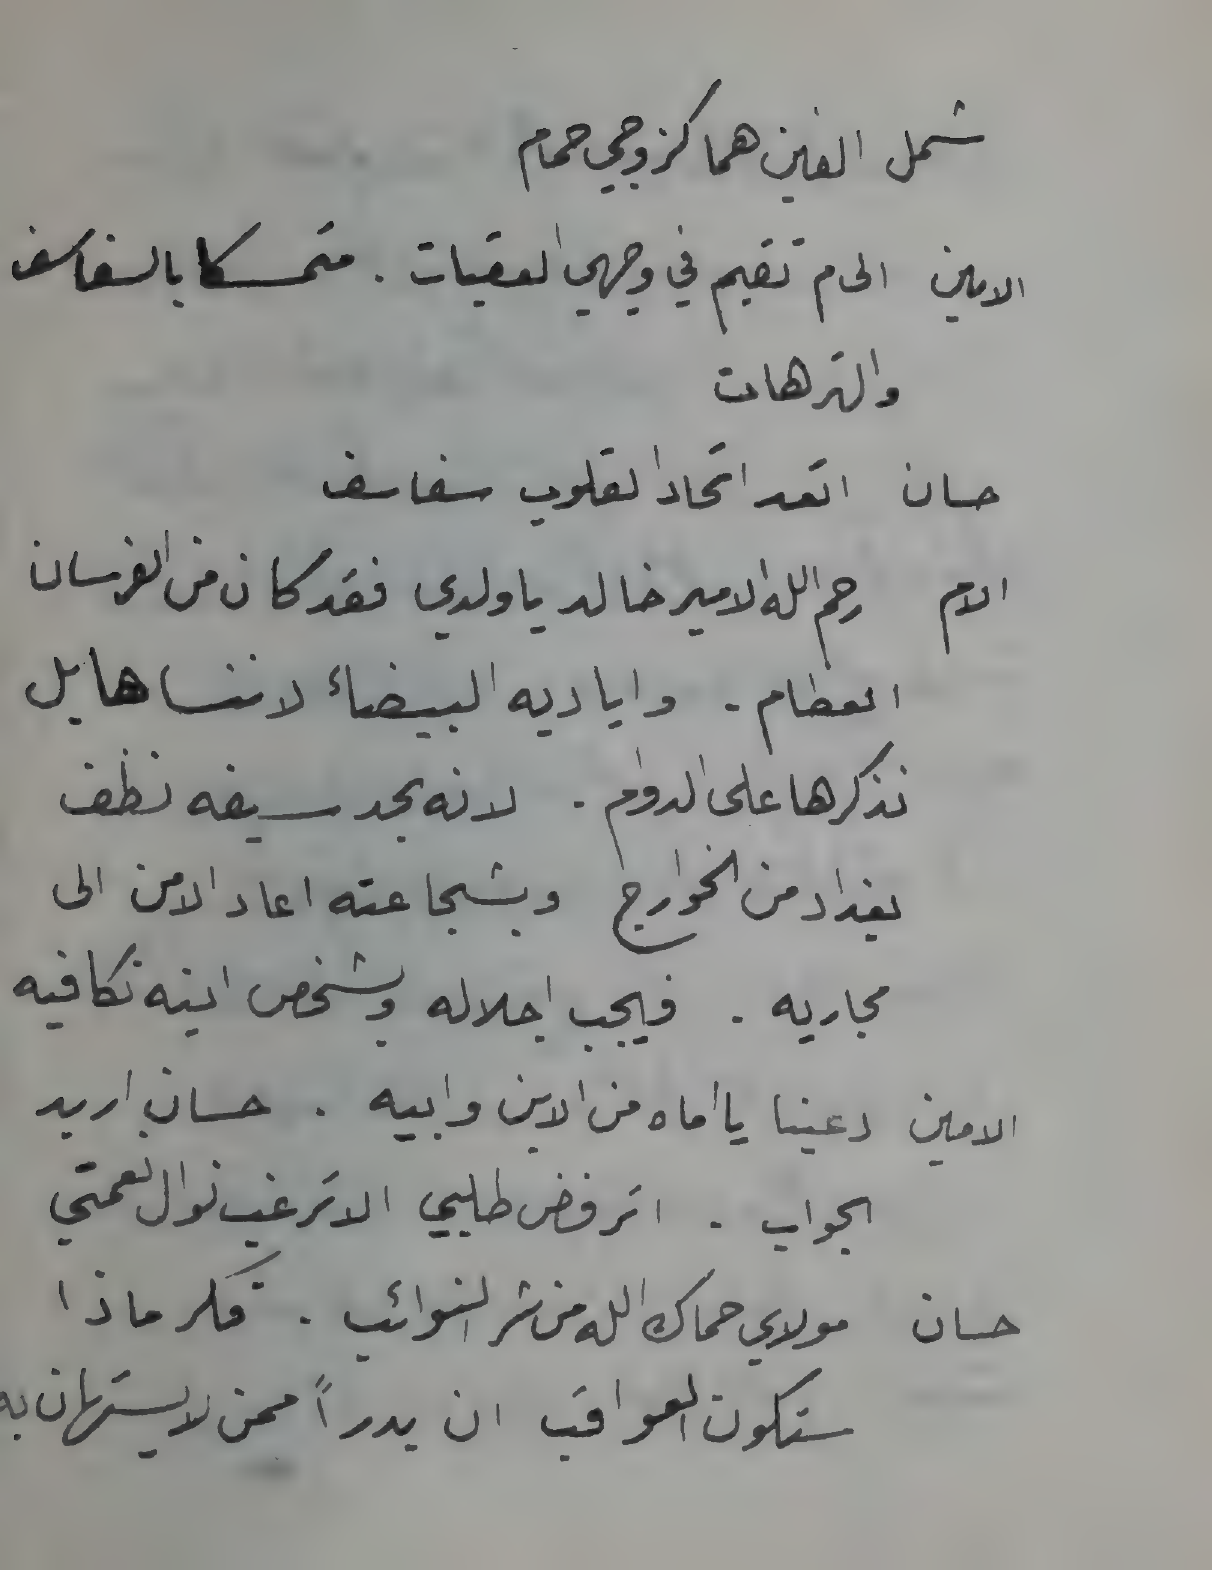 شمل الفين هما كزوجي حمام
الامين الى م تقيم في وجهي العقبات . متمسكا بالسفاسف
والترهات
حسان اتعد اتحاد القلوب سفاسف
الام رحم الله الامير خالد يا ولدي فقد كان من الفرسان
العظام . واياديه البيضاء لا ننساها بل
نذكرها على الدوام . لانه بحد سيفه نظف
بغداد من الخوارج وبشجاعته اعاد الامن الى
مجاريه . فيجب اجلاله وبشخص ابنه نكافيه
الامين دعينا يا اماه من الابن وابيه . حسان اريد
الجواب . اترفض طلبي الا ترغب نوال نعمتي
حسان مولاي حماك الله من شر النوائب . فكر ماذا
ستكون العواقب ان بدرا ممن لا يستهان به